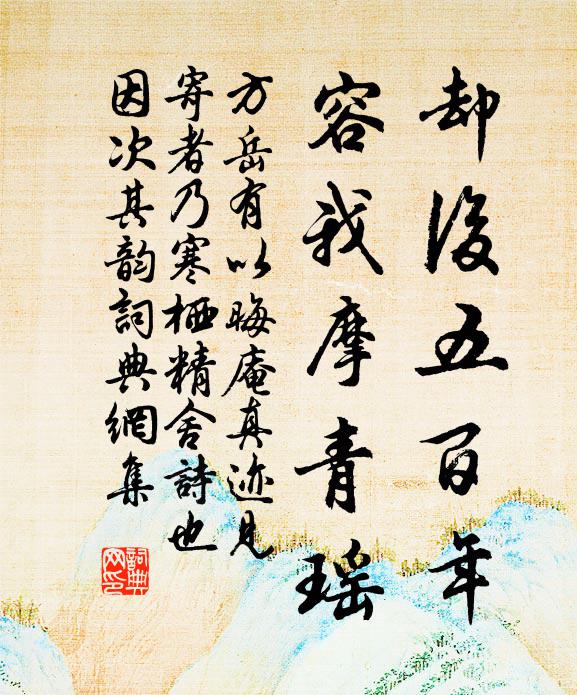 却後五百年
容我摩青瑶
方岳有以晦庵真迹見
寄者乃寒栖精舍詩也
因次其韵詞典網集
詞典網印